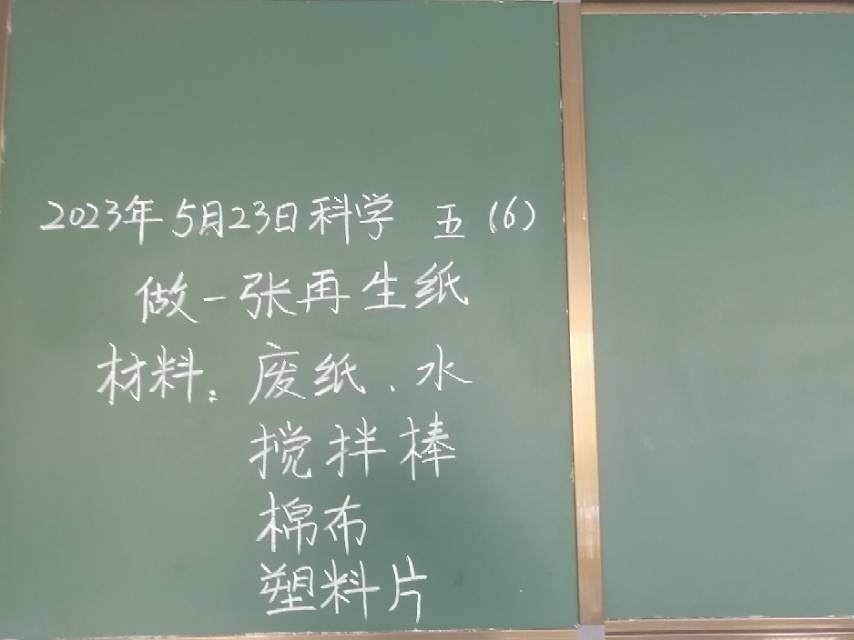 2023年5月23日科学 五(6)
做一张再生纸
材料：废纸、水
搅拌棒
棉布
塑料片